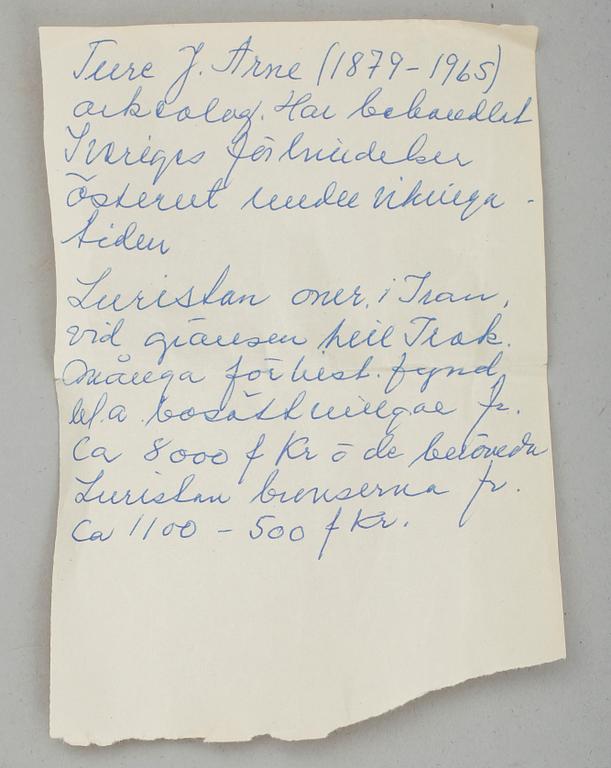 Ture J. Arne (1879-1965)
arkeolog. Har behandlat
Sveriges förbindelser
österut under vikinga-
tiden
Luristan omr. i Iran,
vid gränsen till Irak.
Många förhist. fynd
bl.a. bosättningar fr.
Ca 8000 f Kr o de berömda
Luristan bronserna fr.
Ca 1100 - 500 f Kr.